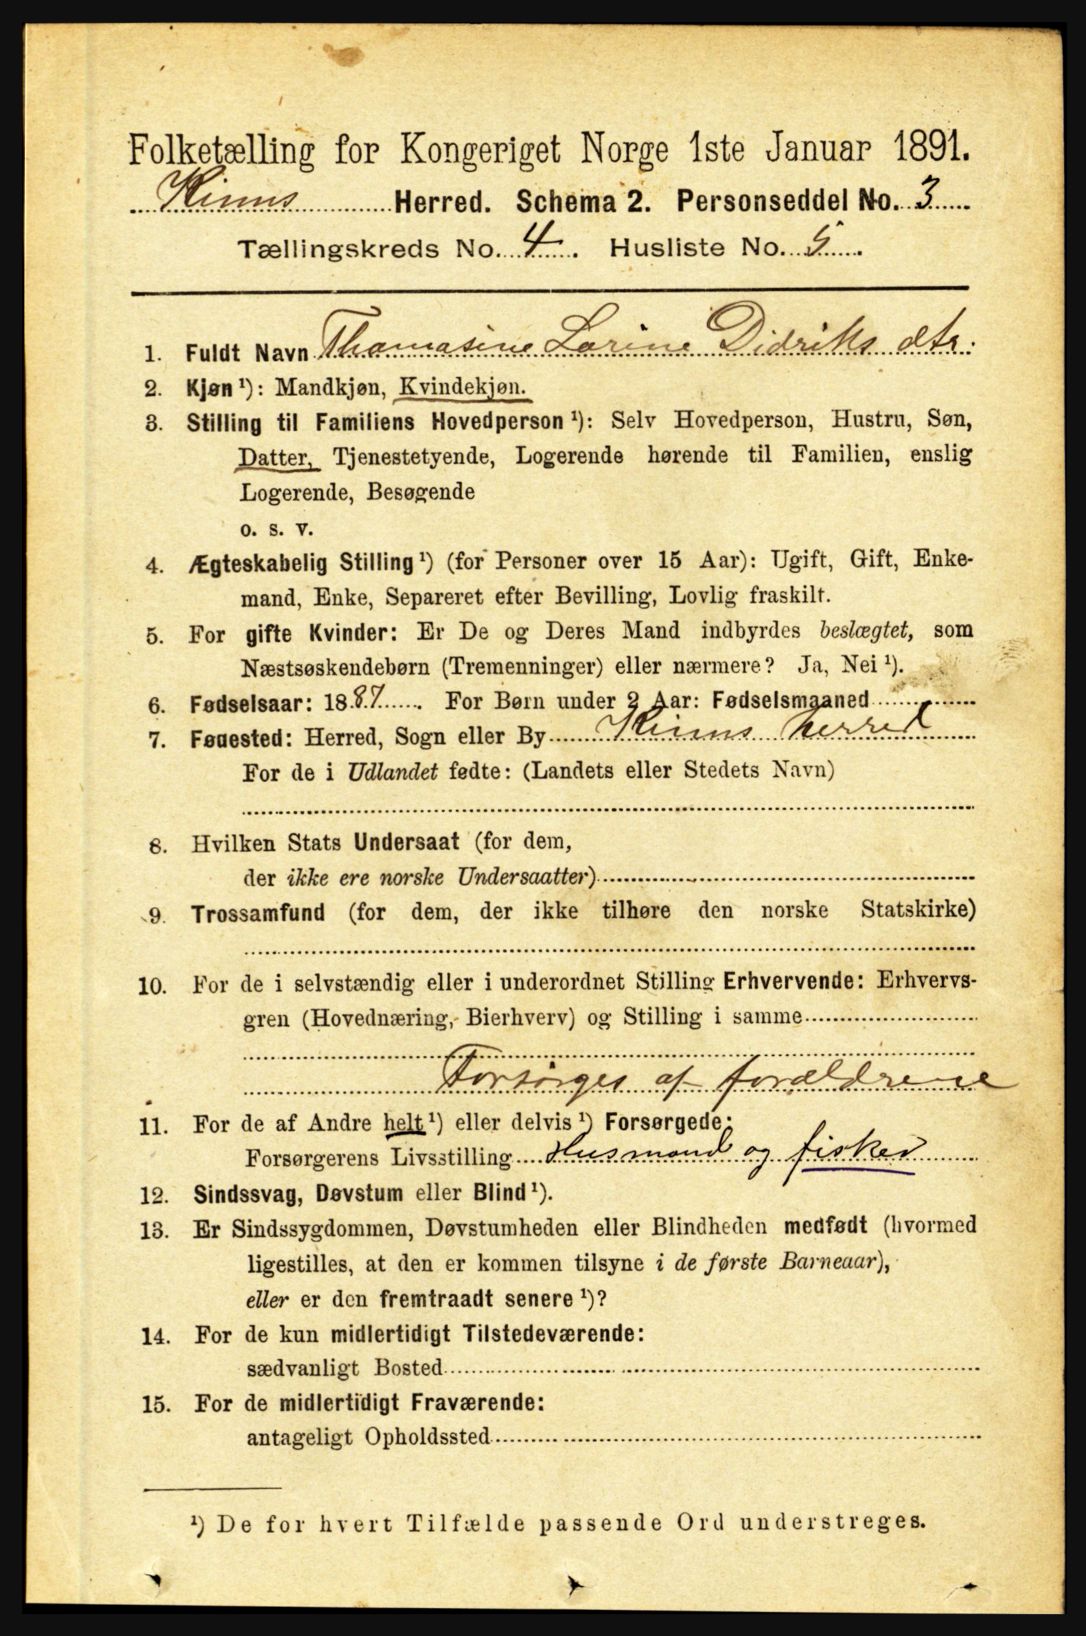 Folketælling for Kongeriget Norge 1ste Januar 1891.
Kinns Herred. Schema 2. Personseddel No. 3
Tællingskreds No. 4. Husliste No. 5.
1. Fuldt Navn Thomasine Larine Didriks dtr.
2. Kjøn ¹): Mandkjøn, Kvindekjøn.
3. Stilling til Familiens Hovedperson ¹): Selv Hovedperson, Hustru, Søn,
Datter, Tjenestetyende, Logerende hørende til Familien, enslig
Logerende, Besøgende
o. s. v.
4. Ægteskabelig Stilling ¹) (for Personer over 15 Aar): Ugift, Gift, Enke-
mand, Enke, Separeret efter Bevilling, Lovlig fraskilt.
5. For gifte Kvinder: Er De og Deres Mand indbyrdes beslægtet, som
Næstsøskendebørn (Tremenninger) eller nærmere? Ja, Nei ¹).
6. Fødselsaar: 1887. For Børn under 2 Aar: Fødselsmaaned
7. Føuested: Herred, Sogn eller By Kinns herred
For de i Udlandet fødte: (Landets eller Stedets Navn)
8. Hvilken Stats Undersaat (for dem,
der ikke ere norske Undersaatter)
9. Trossamfund (for dem, der ikke tilhøre den norske Statskirke)
10. For de i selvstændig eller i underordnet Stilling Erhvervende: Erhvervs-
gren (Hovednæring, Bierhverv) og Stilling i samme
Forsørges af forældrene
11. For de af Andre helt ¹) eller delvis ¹) Forsørgede:
Forsørgerens Livsstilling Husmand og fisker
12. Sindssvag, Døvstum eller Blind ¹).
13. Er Sindssygdommen, Døvstumheden eller Blindheden medfødt (hvormed
ligestilles, at den er kommen tilsyne i de første Barneaar),
eller er den fremtraadt senere ¹)?
14. For de kun midlertidigt Tilstedeværende:
sædvanligt Bosted
15. For de midlertidigt Fraværende:
antageligt Opholdssted
¹) De for hvert Tilfælde passende Ord understreges.